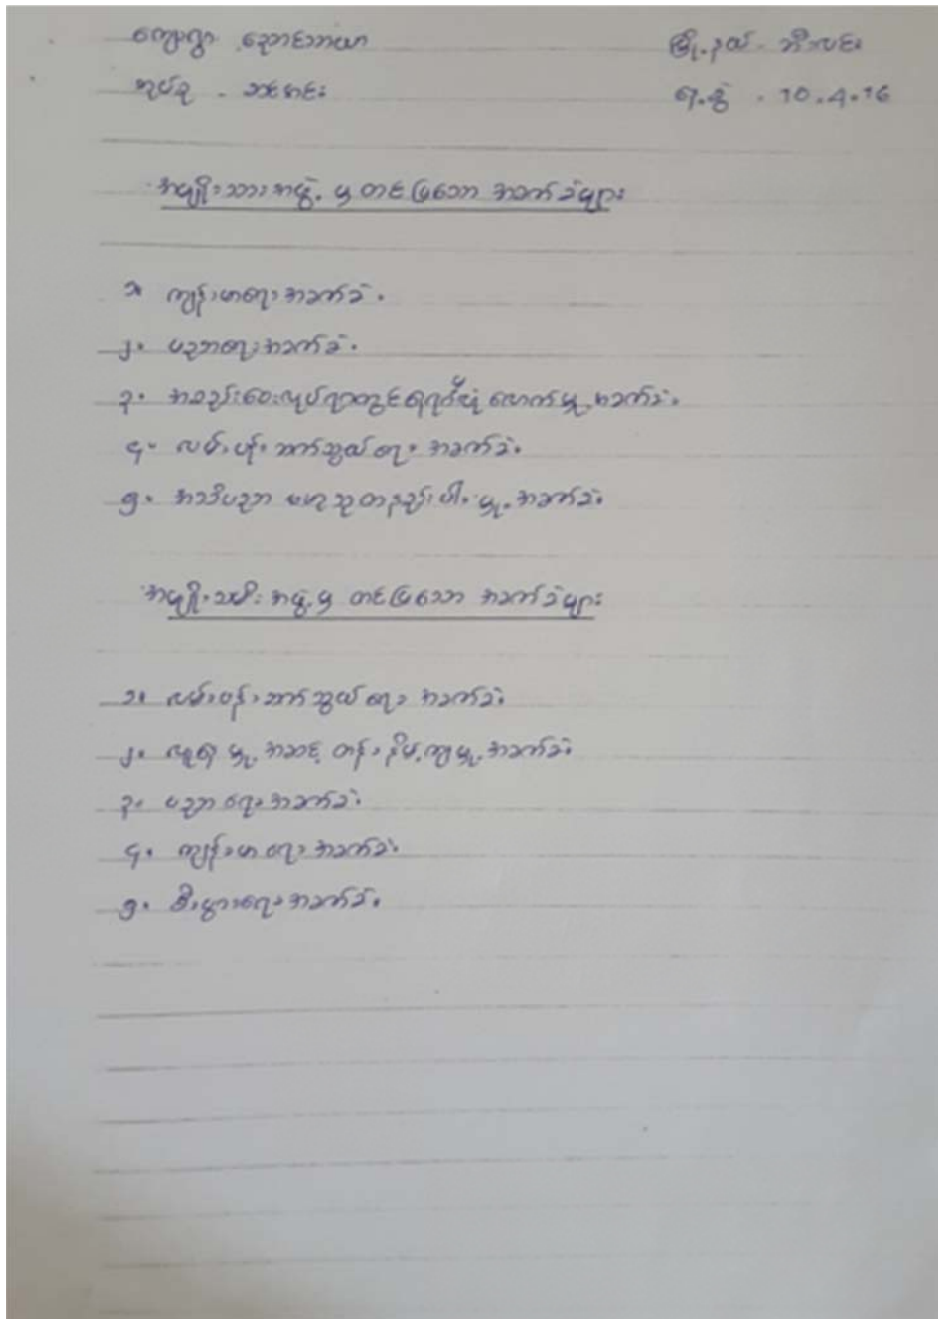 ကျေးရွာ ညောင်သာယာ မြို့နယ် - ဘီးလင်း
အုပ်စု - သင်္ဘောင်း ရ.စွဲ - 10.4.16
အမျိုးသားအဖွဲ့မှ တင်ပြသော အခက်ခဲများ
၁။ ကျန်းမာရေးအခက်ခဲ။
၂။ ပညာရေးအခက်ခဲ။
၃။ အစည်းဝေးလုပ်ရာတွင်ရရင်ပုံ ဖောက်မှု့အခက်ခဲ။
၄။ လမ်းပန်းဆက်သွယ်ရေး အခက်ခဲ။
၅။ အသိပညာ ဗဟုသုတနည်းပါးမှု့အခက်ခဲ။
အမျိုးသမီးအဖွဲ့မှ တင်ပြသော အခက်ခဲများ
၁။ လမ်းပန်းဆက်သွယ်ရေး အခက်ခဲ။
၂။ လူ့ရေမှု့အဆင့်တန်းနိမ့်ကျမှု့အခက်ခဲ။
၃။ ပညာရေးအခက်ခဲ။
၄။ ကျန်းမာရေးအခက်ခဲ။
၅။ စီးပွားရေးအခက်ခဲ။